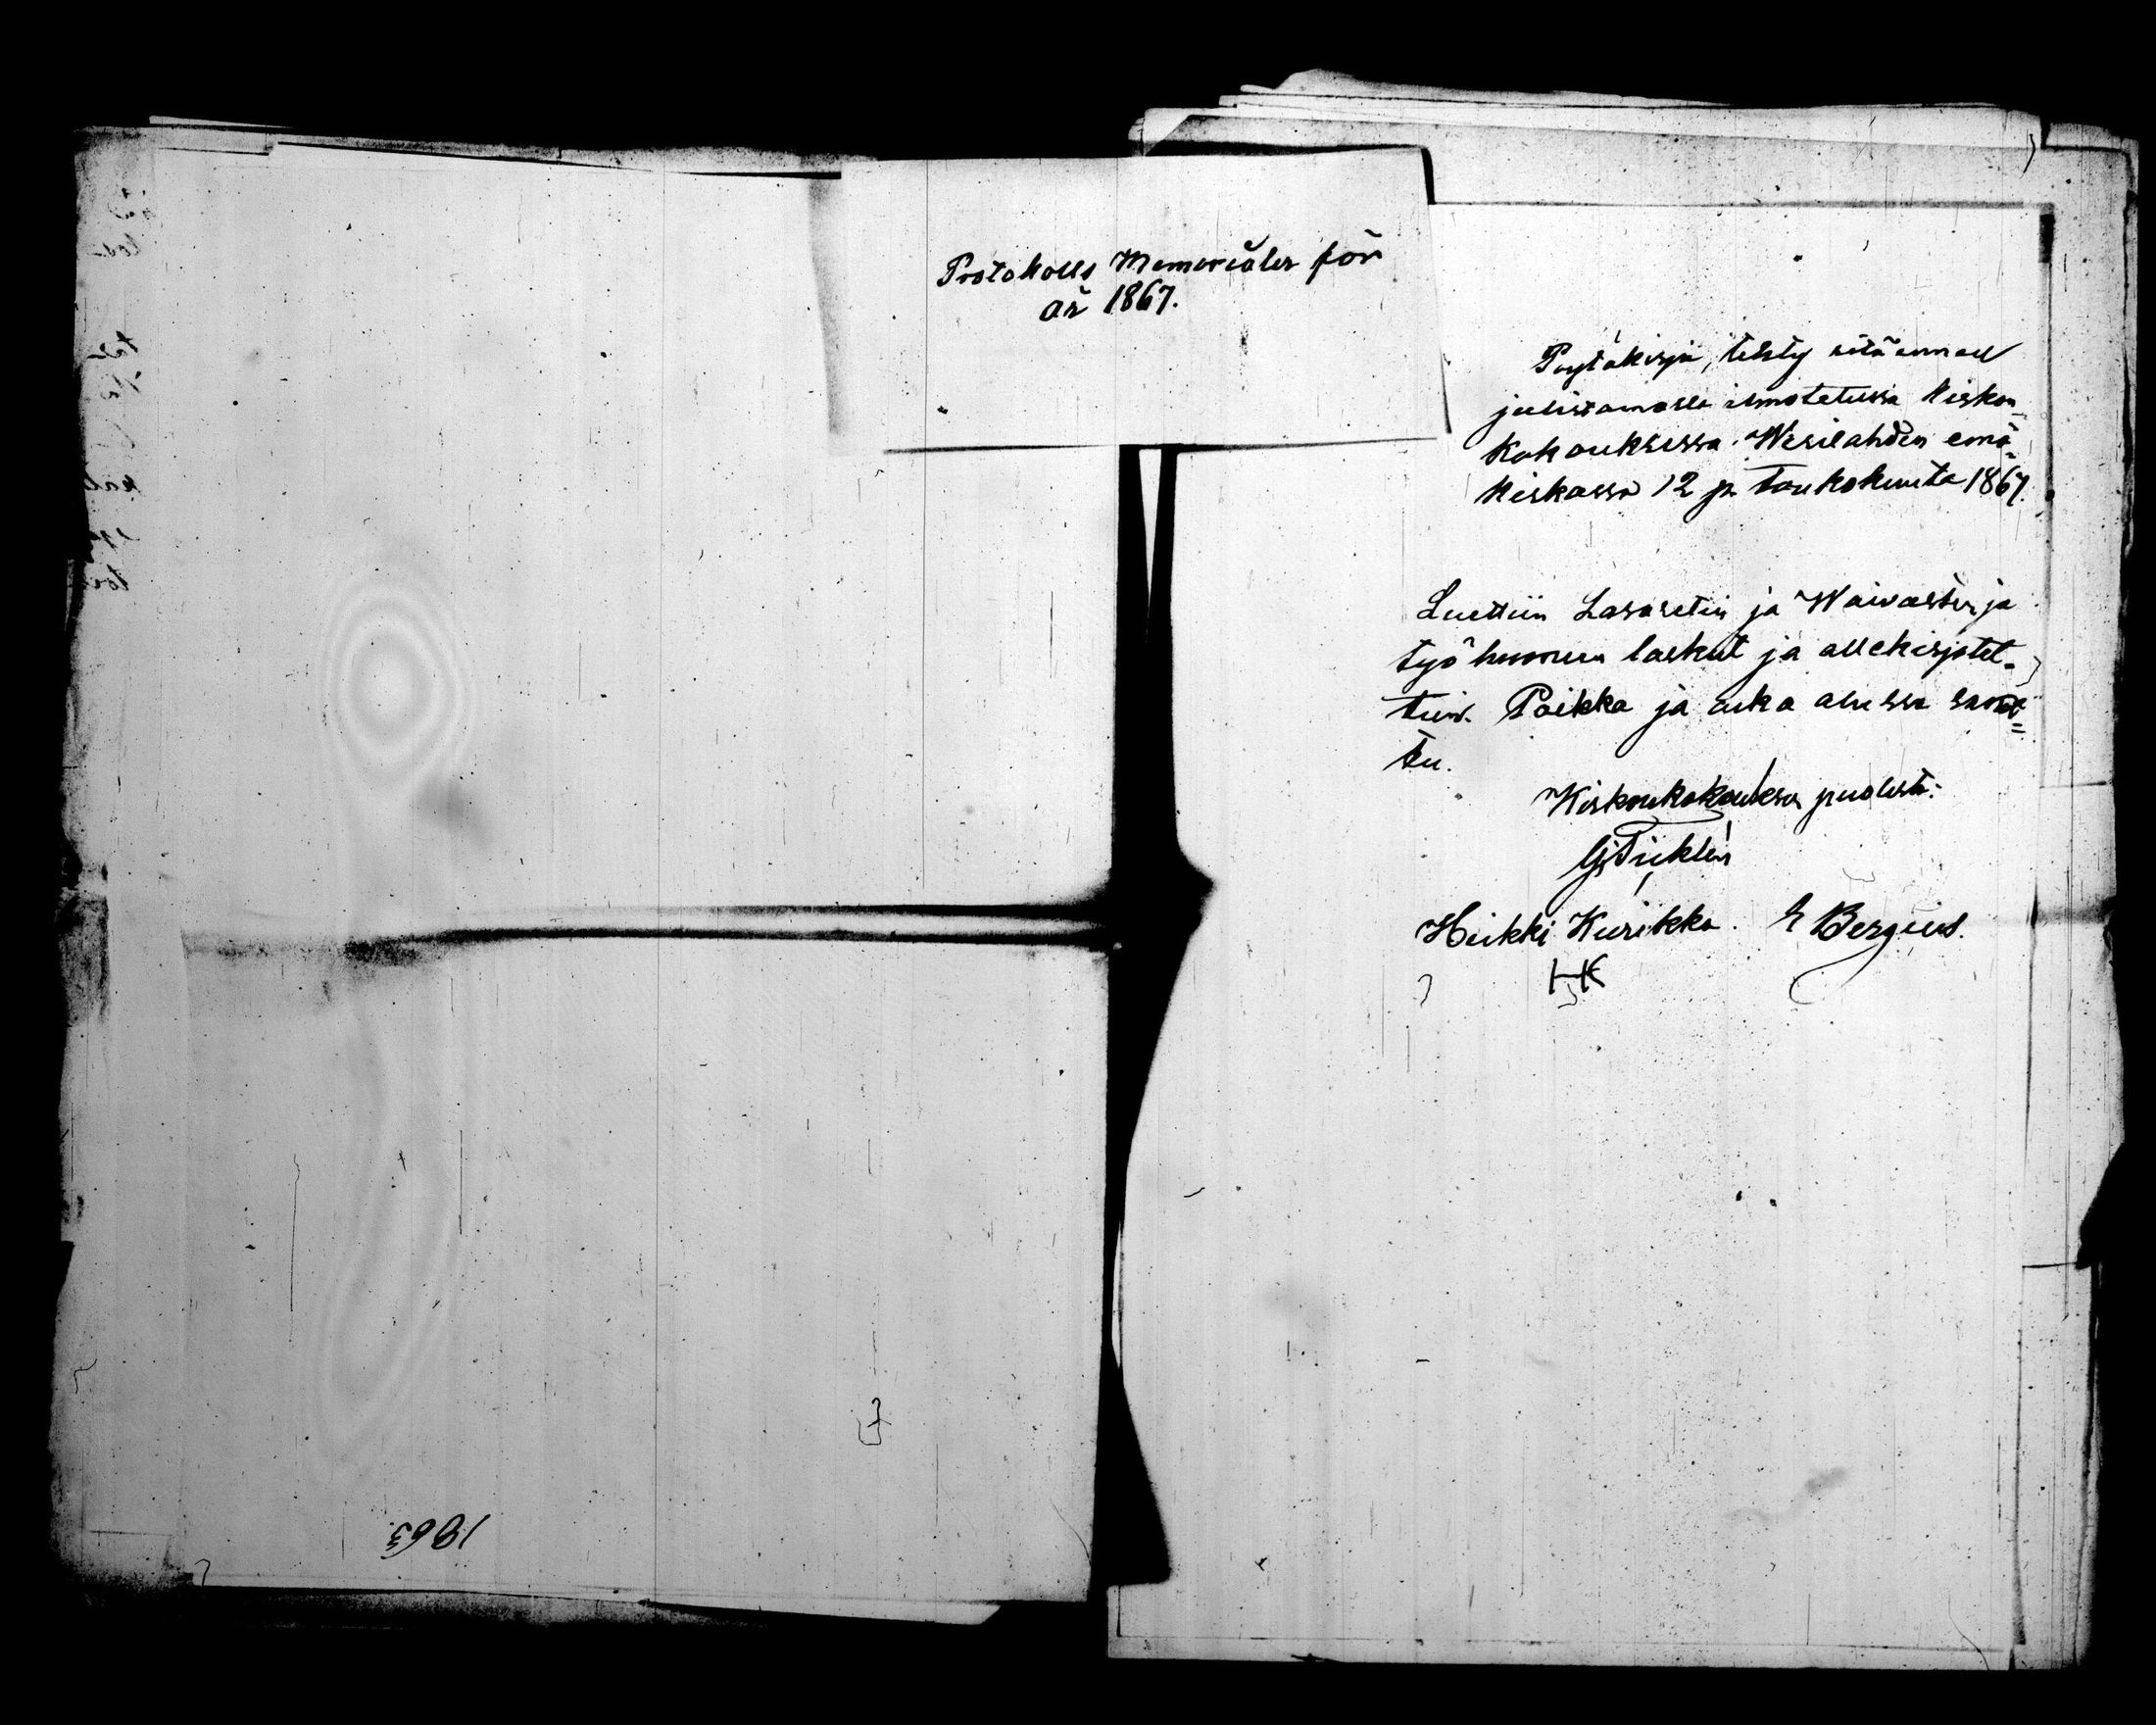 Protokolls Memorialer för
år 1867.
Pöytäkirja, tehty sitä ennen
julistamalla ilmotetussa Kirkon
Kokouksessa Wesilahden emä-
Kirkossa 12 p. Toukokuuta 1867.
Luettiin Lasaretin ja Waivasten ja
työhuoneen laskut ja allekirjotet-
tiin. Paikka ja aika alussa sano-
tu.
Kirkonkokouksen puolesta:
Heikki Kurikka. E Bergius.
HK
1863